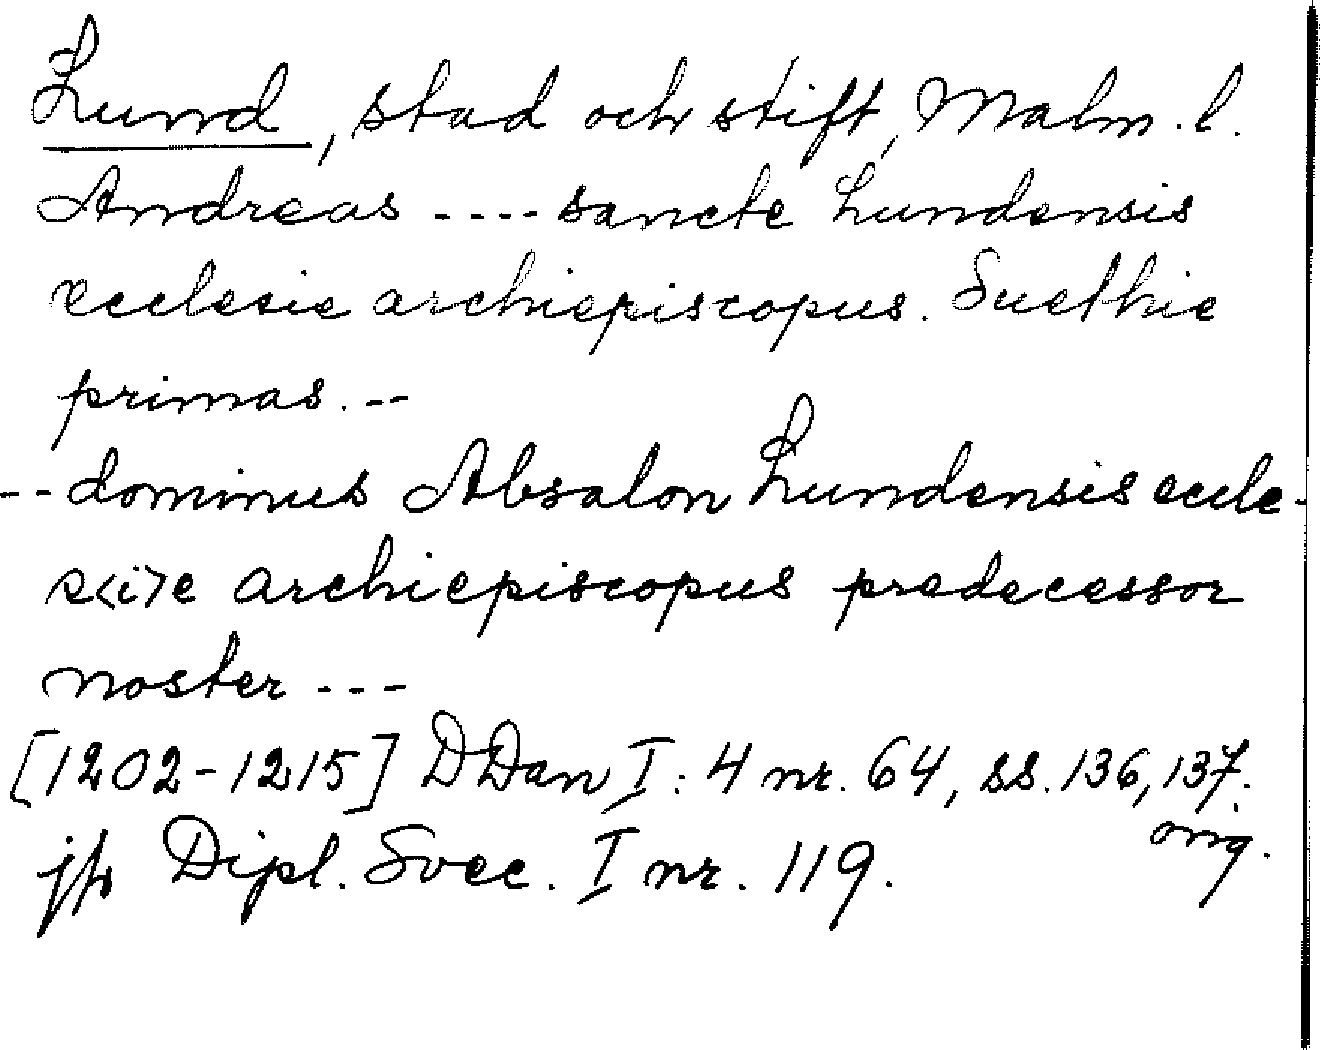 Lund, stad och stift, Malm. l.
Andreas ---- sancte Lundensis
ecclesie archiepiscopus. Suethie
primas. --
-- dominus Absalon Lundensis eccle-
s<i>e archiepiscopus predecessor
noster ---
[1202-1215] DDan I: 4 nr. 64, ss. 136, 137.
orig.
jfr Dipl. Svec. I nr. 119.